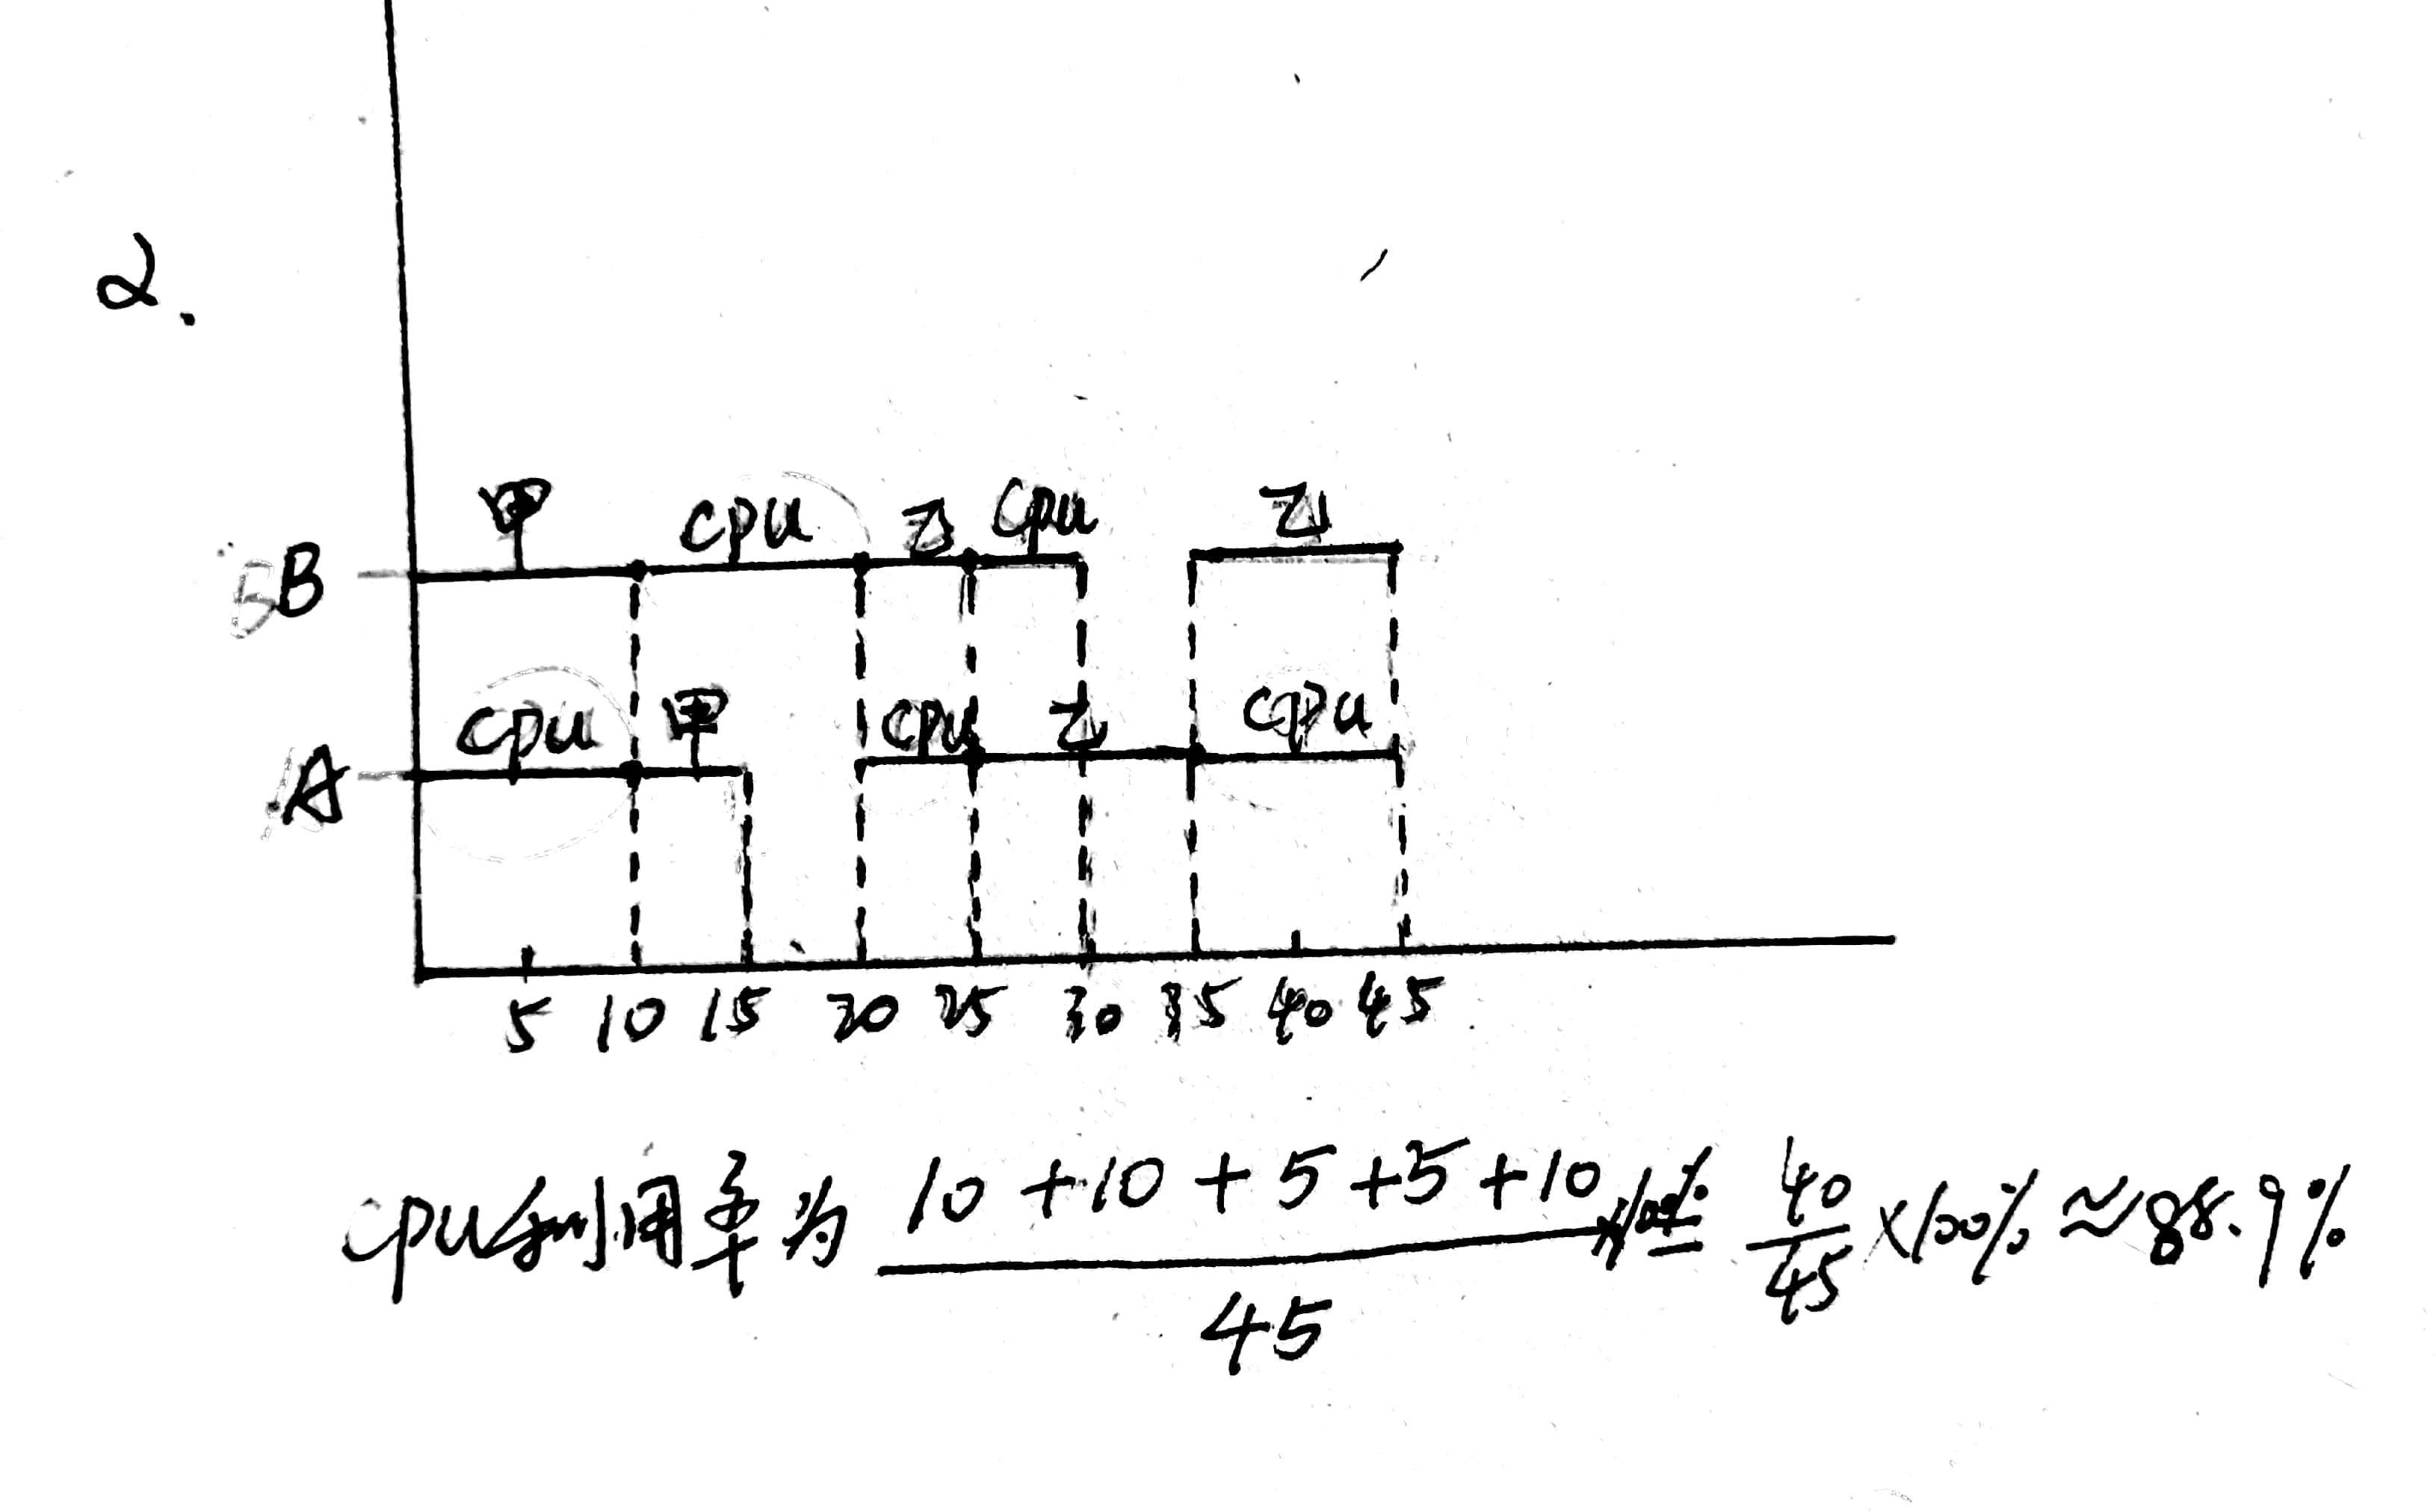 2.
甲 CPU 乙 CPU 乙
B
CPU 甲 CPU 乙 CPU
A
5 10 15 20 25 30 35 40 45
CPU利用率为 10+10+5+5+10 / 45 ×100% = 40/45 ×100% ≈ 88.9%